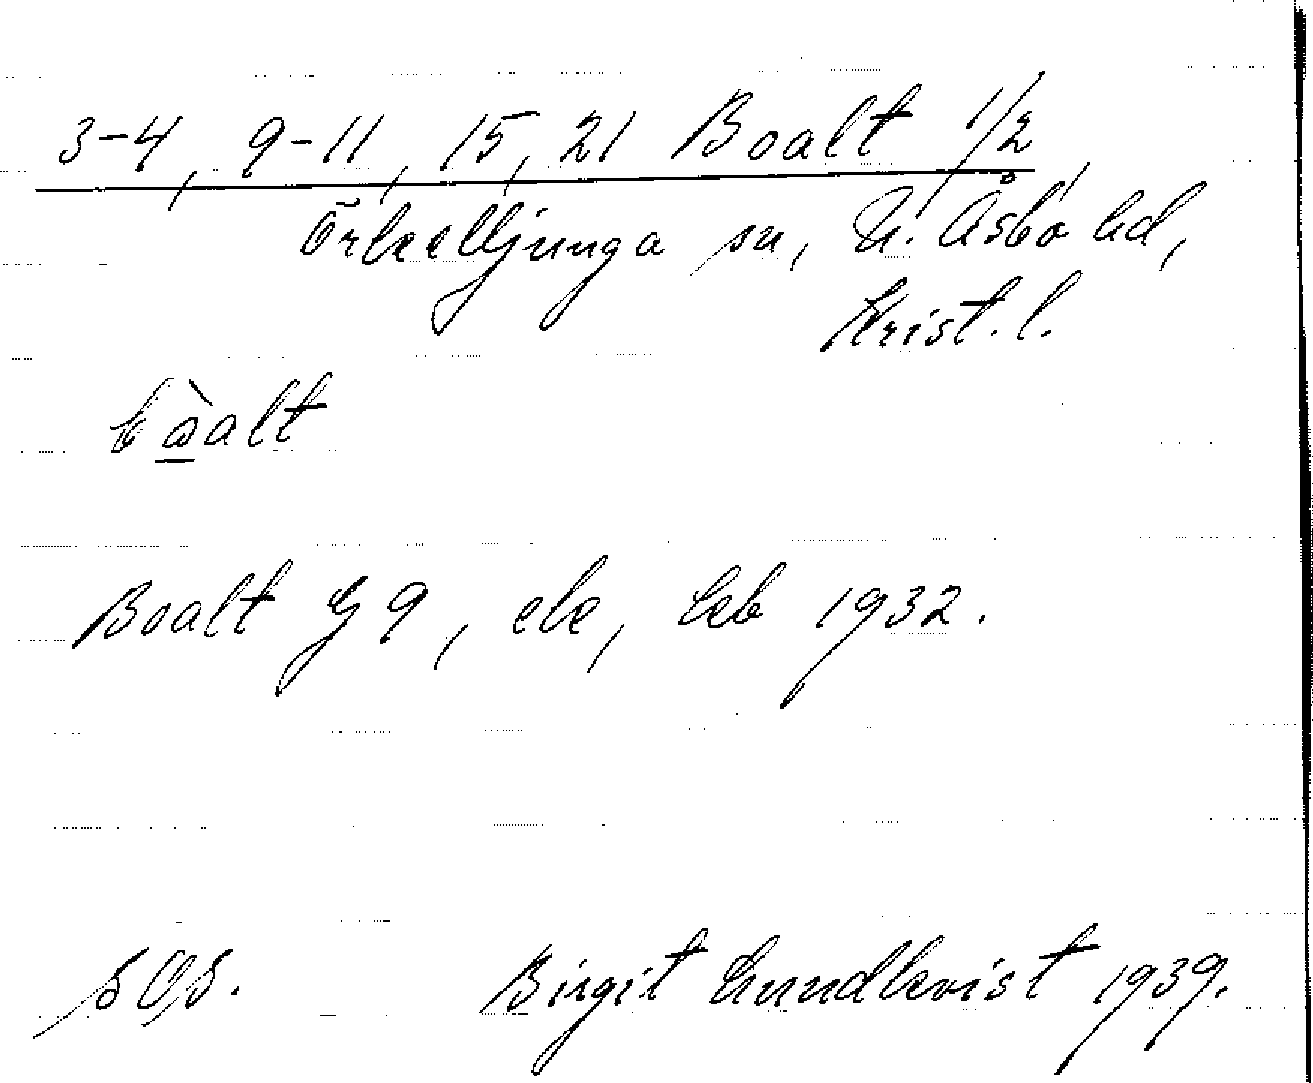 3-4, 9-11, 15, 21 Boalt 1/2,
Örkelljunga sn, N. Åsbo hd,
Krist. l.
bàalt
Boalt G 9, ek, Lb 1932.
SOS. Birgit Lundkvist 1939.